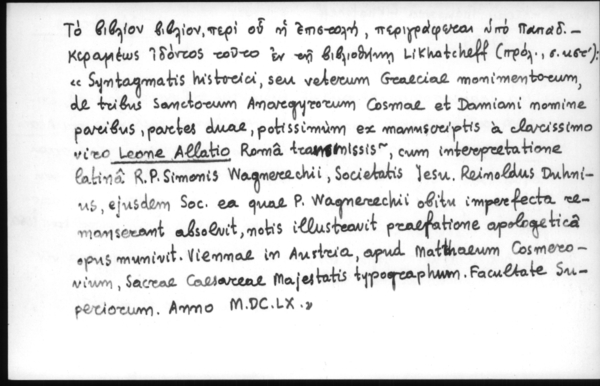 Τὸ βιβλίον βιβλίον, περὶ οὗ ἡ ἐπιστολή, περιγράφεται ὑπὸ Παπαδ.-
Κεραμέως ἰδόντος τοῦτο ἐν τῇ βιβλιοθήκῃ Likhatcheff (πρόλ., σ. κστ'):
« Syntagmatis historici, seu veterum Graeciae monimentorum,
de tribus Sanctorum Anargyrorum Cosmae et Damiani nomine
paribus, partes duae, potissimùm ex manuscriptis à clarissimo
viro Leone Allatio Româ transmissis~, cum interpretatione
latinâ R.P. Simonis Wagnerechii, Societatis Jesu. Reinoldus Duhni-
us, ejusdem Soc. ea quae P. Wagnerechii obitu imperfecta re-
manserant absolvit, notis illustravit praefatione apologeticâ
opus munivit. Viennae in Austria, apud Matthaeum Cosmero-
vium, Sacrae Caesareae Majestatis typographum. Facultate Su-
periorum. Anno M.DC.LX. »